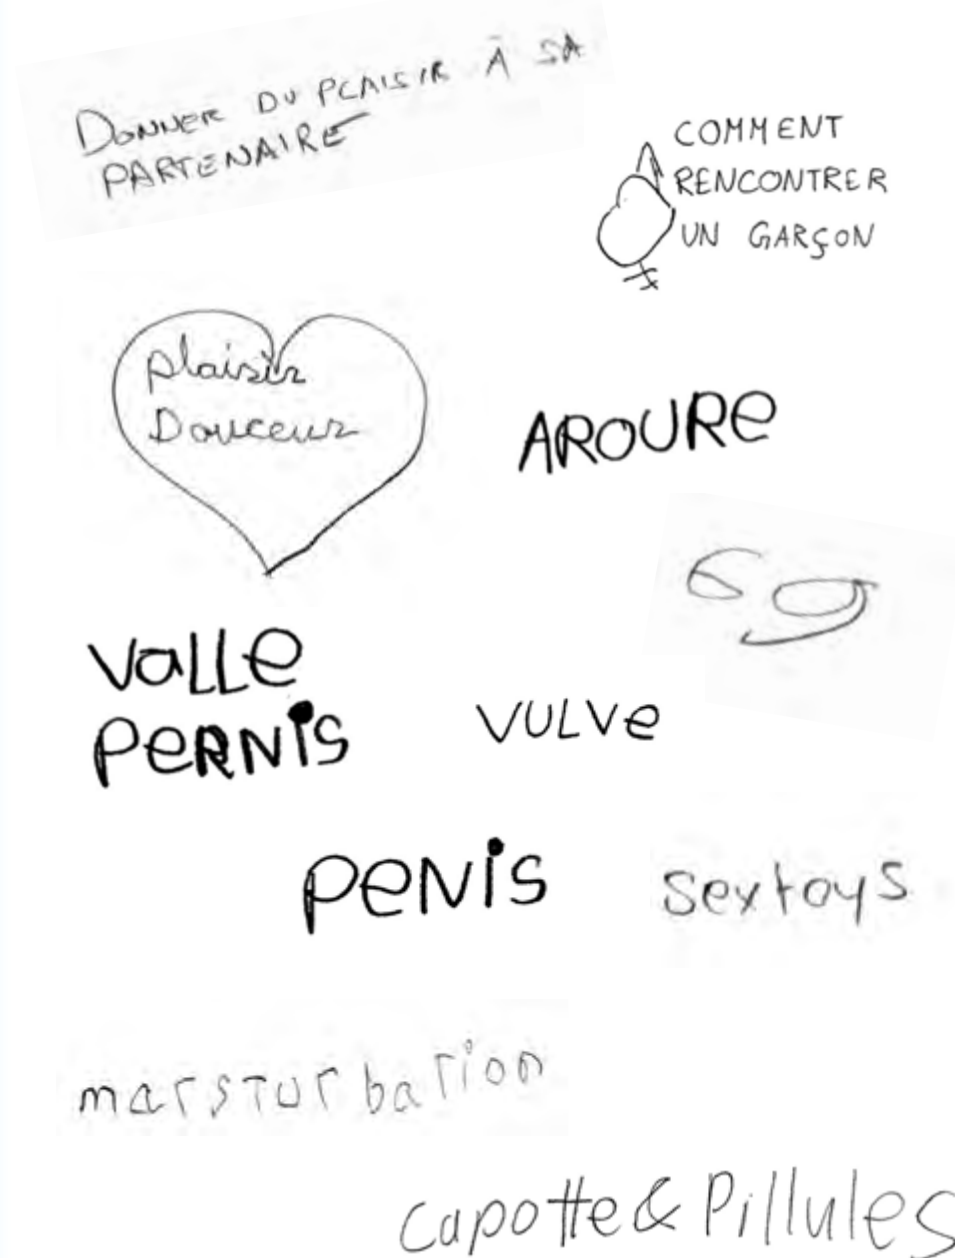 DONNER DU PLAISIR À SA
PARTENAIRE
COMMENT
RENCONTRER
UN GARÇON
plaisir
Douceur
AROURE
69
Valle
PerNiS
VULVe
PeNiS
Sextoys
marsTurbaTion
Capotte & Pillules